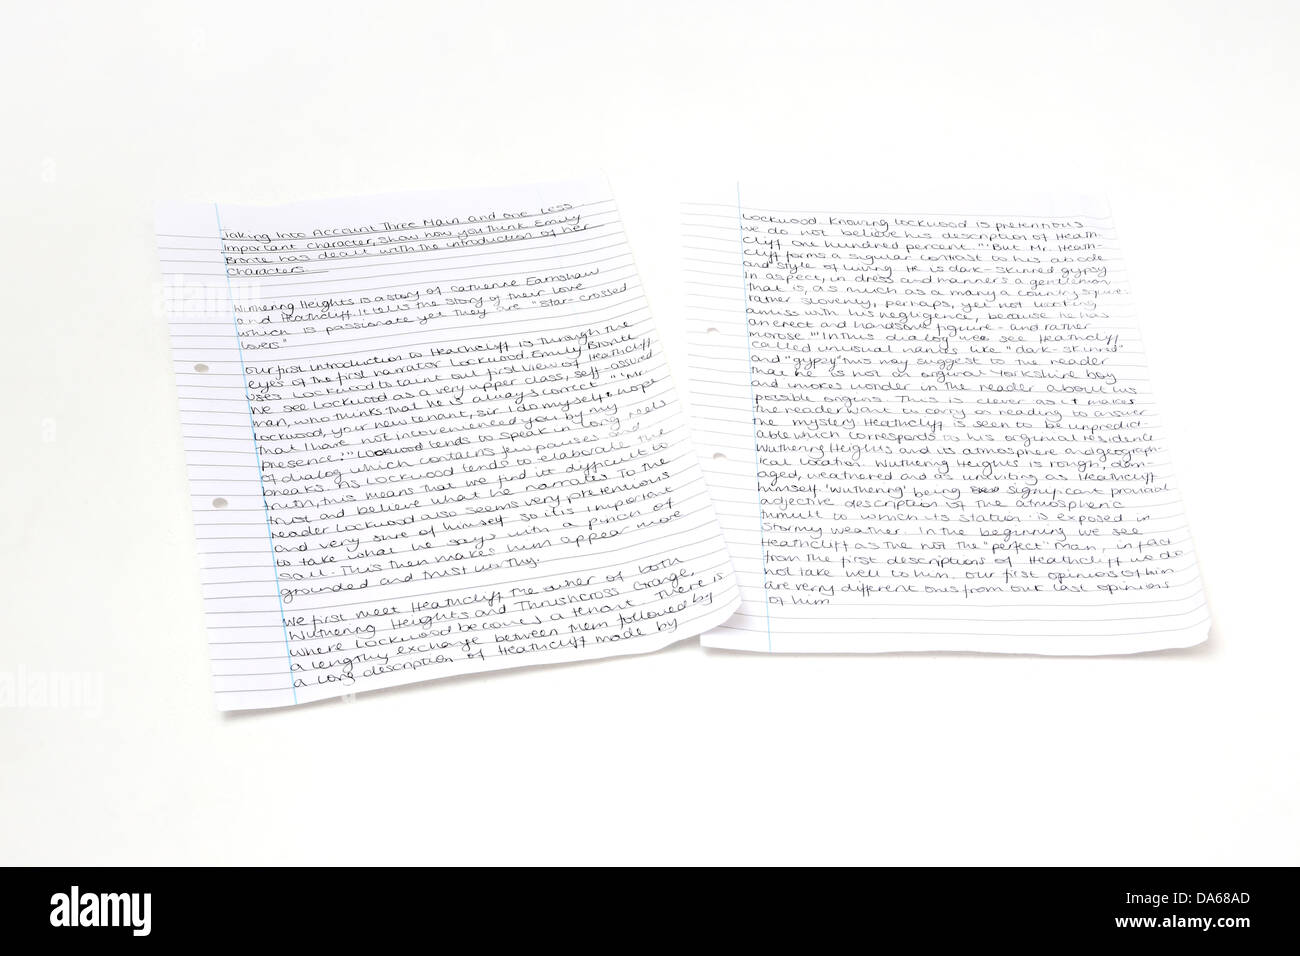 Taking Into Account Three Main and one Less
Important character, show how you think Emily
Bronte has dealt with the introduction of her
characters.
Wuthering Heights is a story of Catherine Earnshaw
and Heathcliff. It tells the story of their love
which is passionate yet they are "star-crossed
lovers"
Our first introduction to Heathcliff is through the
eyes of the first narrator Lockwood. Emily Bronte
uses Lockwood to taunt our first view of Heathcliff.
We see Lockwood as a very upper class, self-assured
man, who thinks that he is always correct "'Mr.
Lockwood, your new tenant, sir I do myself hope
that I have not inconvenienced you by my
presence.'" Lockwood tends to speak in long reels
of dialog which contains few pauses and
breaks. As Lockwood tends to elaborate the
truth, this means that we find it difficult to
trust and believe what he narrates To the
reader Lockwood also seems very pretentious
and very sure of himself so it is important
to take what he says with a pinch of
salt. This then makes him appear more
grounded and trust worthy.
We first meet Heathcliff the owner of both
Wuthering Heights and Thrushcross Grange,
where Lockwood becomes a tenant There is
a lengthy exchange between them followed by
a long description of Heathcliff made by
Lockwood. Knowing Lockwood is pretentious
we do not believe his description of Heath-
cliff one hundred percent. "'But Mr. Heath-
cliff forms a singular contrast to his abode
and style of living He is dark-skinned gypsy
in aspect, in dress and manners a gentleman
that is, as much as a many a country squire
rather slovenly, perhaps, yet not looking
amiss with his negligence, because he has
an erect and handsome figure - and rather
morose'" In this dialog we see Heathcliff
called unusual names like "dark-skinned"
and "gypsy" this may suggest to the reader
that he is not an original Yorkshire boy
and invokes wonder in the reader about his
possible origins. This is clever as it makes
the reader want to carry on reading to answer
the mystery Heathcliff is seen to be unpredict-
able which corresponds to his original residence
Wuthering Heights and its atmosphere and geograph-
ical location. Wuthering Heights is rough, dam-
aged, weathered and as uninviting as Heathcliff
himself. 'Wuthering' being significant provincial
adjective description of the atmospheric
tumult to which its station is exposed in
stormy weather. In the beginning we see
Heathcliff as the not the "perfect" man, in fact
from the first descriptions of Heathcliff we do
not take well to him. Our first opinions of him
are very different ones from our last opinions
of him
a
alamy
alamy
Image ID: DA68AD
www.alamy.com